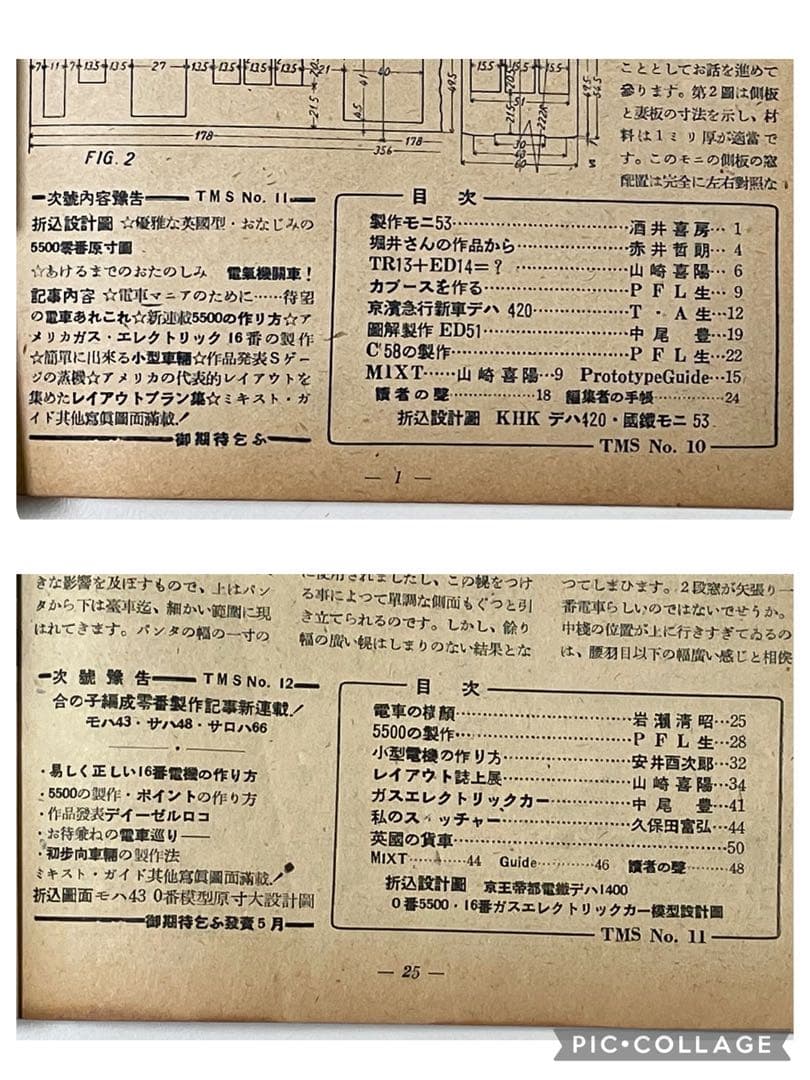 7 11 7 13.5 27 13.5 13.5 13.5 21 60
178 178
356
FIG. 2
15.5 15.5
こととしてお話を進めて
參ります。第2圖は側板
と妻板の寸法を示し、材
料は1ミリ厚が適當で
す。このモニの側板の窓
配置は完全に左右對照な
次號內容豫告 TMS No. 11
折込設計圖 ☆優雅な英國型・おなじみの
5500零番原寸圖
☆あけるまでのおたのしみ 電氣機關車!
記事內容 ☆電車マニアのために……待望
の電車あれこれ☆新連載5500の作り方☆ア
メリカガス・エレクトリック16番の製作
☆簡單に出來る小型車輛☆作品発表Sゲー
ジの蒸機☆アメリカの代表的レイアウトを
集めたレイアウトプラン集☆ミキスト・ガ
イド其他寫眞圖面滿載!
御期待乞ふ
目次
製作モニ53 酒井喜房…1
堀井さんの作品から 赤井哲朗…4
TR13+ED14=? 山崎喜陽…6
カブースを作る PFL生…9
京濱急行新車デハ 420 T・A生…12
圖解製作 ED51 中尾豊…19
C58の製作 PFL生…22
MIXT……山崎喜陽…9 PrototypeGuide…15
讀者の聲 18 編集者の手帳 24
折込設計圖 KHK デハ420・國鐵モニ 53
TMS No. 10
— 1 —
きな影響を及ぼすもので、上はパン
タから下は臺車迄、細かい範圍に現
はれてきます。パンタの幅の一寸の
に使用されましたし、この幌をつけ
る事によつて單調な側面もぐつと引
き立てられるのです。しかし、餘り
幅の廣い幌はしまりのない結果とな
つてしまひます。2段窓が矢張り一
番電車らしいのではないでせうか。
中棧の位置が上に行きすぎてゐるの
は、腰羽目以下の幅廣い感じと相俟
次號豫告 TMS No. 12
合の子編成零番製作記事新連載!
モハ43・サハ48・サロハ66
・易しく正しい16番電機の作り方
・5500の製作・ポイントの作り方
・作品發表デイーゼルロコ
・お待兼ねの電車巡り——
・初步向車輛の製作法
ミキスト・ガイド其他寫眞圖面滿載!
折込圖面モハ43 0番模型原寸大設計圖
御期待乞ふ發賣5月
目次
電車の橫顏 岩瀨淸昭…25
5500の製作 PFL生…28
小型電機の作り方 安井酉次郎…32
レイアウト誌上展 山崎喜陽…34
ガスエレクトリックカー 中尾豊…41
私のスイッチャー 久保田富弘…44
英國の貨車 50
MIXT 44 Guide 46 讀者の聲 48
折込設計圖 京王帝都電鐵デハ1400
0番5500・16番ガスエレクトリックカー模型設計圖
TMS No. 11
— 25 —
PIC•COLLAGE